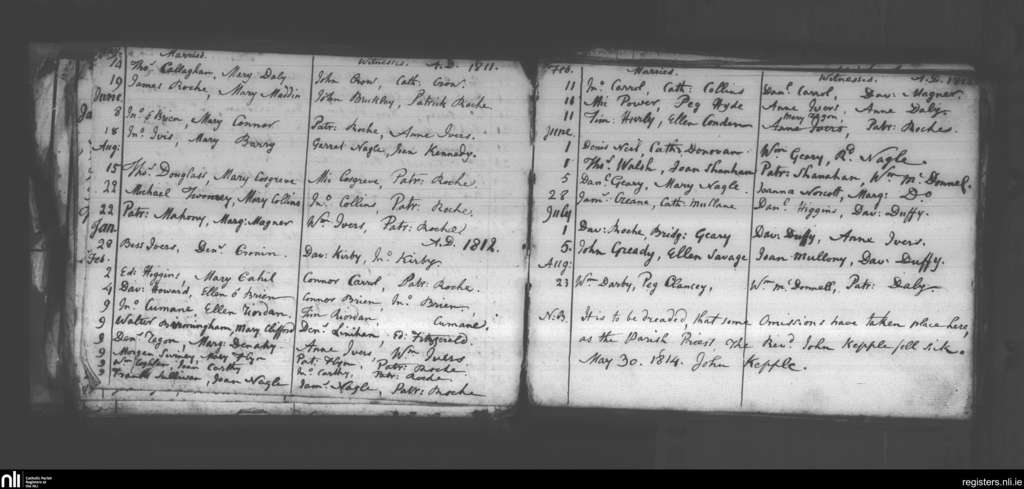 Married. Witnesses. A.D. 1811.
14 Thos. Callaghan, Mary Daly John Crone, Cath: Crone.
19 James Roche, Mary Maddin John Buckley, Patrick Roche.
June
8 Jno. ó Brien, Mary Connor Patr: Roche, Anne Ivers.
18 Jno. Ivis, Mary Barry Garret Nagle, Joan Kennedy.
Aug:
15 Thos. Douglass Mary Cosgreve Mic Cosgreve, Patr: Roche.
22 Michael Twomey, Mary Collins Jno. Collins, Patr: Roche.
22 Patr: Mahony, Marg: Magner Wm. Ivers, Patr: Roche
Jan: A.D. 1812.
20 Bess Ivers, Dens. Cronin. Dav: Kirby, Jno. Kirby.
Feb.
2 Ed: Higgins, Mary Cahil Connor Carrol, Patr: Roche.
4 Dav: Howard, Ellen ó Brien Connor Brien, Jno. Brien,
9 Jno. Cumane, Ellen Riordan. Tim Riordan Cumane.
9 Walter Birmingham, Mary Clifford Denl. Linihan, Ed: Fitzgerald.
9 Denl. Regan, Marg: Denahy Anne Ivers, Wm Ivers
9 Morgan Swiney, Mary Flyn Pat: Flynn, Patr: Roche.
9 Joan Carthy Jno. Carthy, Patr: Roche
9 Sullivan, Joan Nagle Jams. Nagle, Patr: Roche
Feb. Married. Witnesses. A.D.
11 Jno. Carrol, Cath: Collins Danl. Carrol, Dav: Magner.
11 Mic Power, Peg Hyde Anne Ivers, Anne Daly
11 Tim: Hurly, Ellen Condon Anne Ivers, Patr: Roche.
June.
1 Denis Neal Cath: Donovan. Wm Geary, Rd. Nagle
1 Thos. Walsh, Joan Shanahan Patr: Shanahan, Wm McDonnel.
5 Danl. Geary, Mary Nagle. Joanna Norcott, Marg: Do.
28 Jams. Creana, Cath: Mullane Danl. Higgins, Dav: Duffy.
July
1 Dav: Roche, Bridg: Geary Dav: Duffy, Anne Ivers.
5. John Gready, Ellen Savage Joan Mullony, Dav: Duffy.
Aug:
23 Wm Darby, Peg Clancey, Wm McDonnell, Patr: Daly.
N.B. It is to be dreaded, that some Omissions have taken place here,
as the Parish Priest the Revd. John Kepple fell sick.
May 30. 1814. John Kepple.
nli
Catholic Parish
Registers at
the NLI
registers.nli.ie